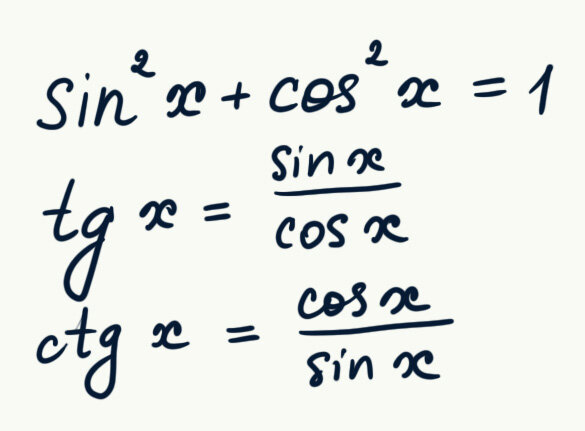 sin²x + cos²x = 1
tg x = sin x / cos x
ctg x = cos x / sin x